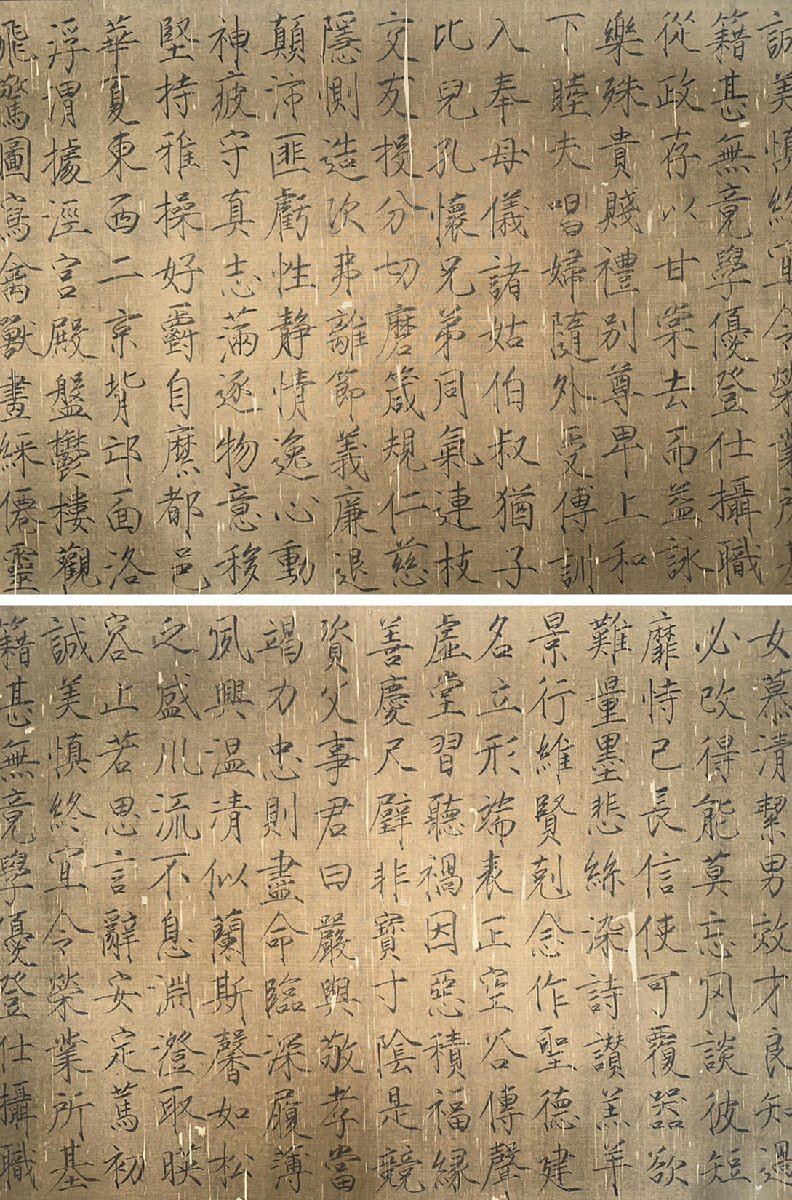 誠美慎終宜令榮業所基
籍甚無竟學優登仕攝職
從政存以甘棠去而益詠
樂殊貴賤禮別尊卑上和
下睦夫唱婦隨外受傅訓
入奉母儀諸姑伯叔猶子
比兒孔懷兄弟同氣連枝
交友投分切磨箴規仁慈
隱惻造次弗離節義廉退
顛沛匪虧性静情逸心動
神疲守真志滿逐物意移
堅持雅操好爵自縻都邑
華夏東西二京背邙面洛
浮渭據涇宮殿盤鬱樓觀
飛驚圖寫禽獸畫綵僊靈
女慕清絜男效才良知過
必改得能莫忘罔談彼短
靡恃己長信使可覆器欲
難量墨悲絲染詩讃羔羊
景行維賢剋念作聖德建
名立形端表正空谷傳聲
虛堂習聽禍因惡積福緣
善慶尺璧非寶寸陰是競
資父事君曰嚴與敬孝當
竭力忠則盡命臨深履薄
夙興温清似蘭斯馨如松
之盛川流不息淵澄取暎
容止若思言辭安定篤初
誠美慎終宜令榮業所基
籍甚無竟學優登仕攝職